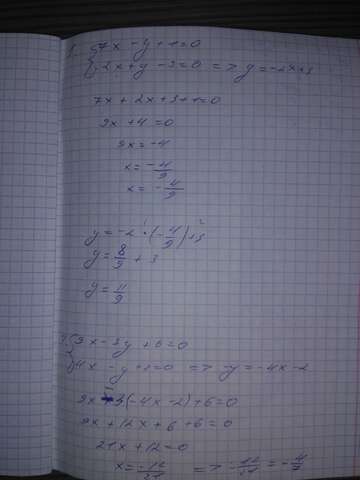 {7x - y + 1 = 0
2x + y - 3 = 0 => y = -2x+3
7x + 2x + 3 + 1 = 0
9x + 4 = 0
9x = -4
x = -4/9
x = -4/9
y = -2 · (-4/9) + 3
y = 8/9 + 3
y = 11/9
{9x - 3y + 6 = 0
4x - y + 2 = 0 => -y = -4x - 2
9x + 3(-4x - 2) + 6 = 0
9x + 12x + 6 + 6 = 0
21x + 12 = 0
x = -12/21 => -12/21 = -4/7